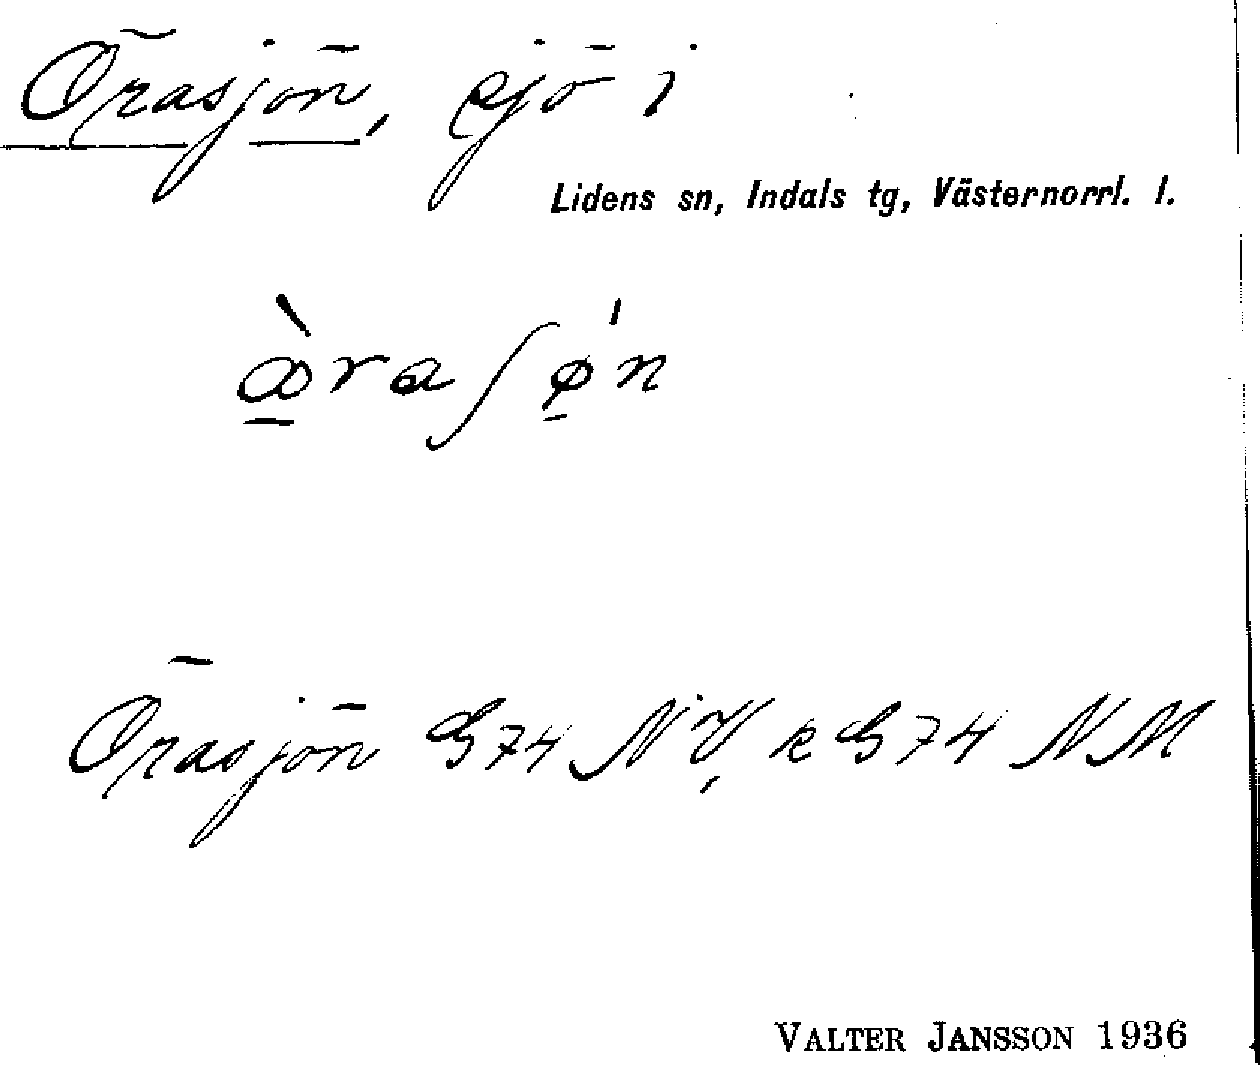 Örasjön, sjö i
Lidens sn, Indals tg, Västernorrl. l.
Örasjön G74 NV, k G74 NM
VALTER JANSSON 1936